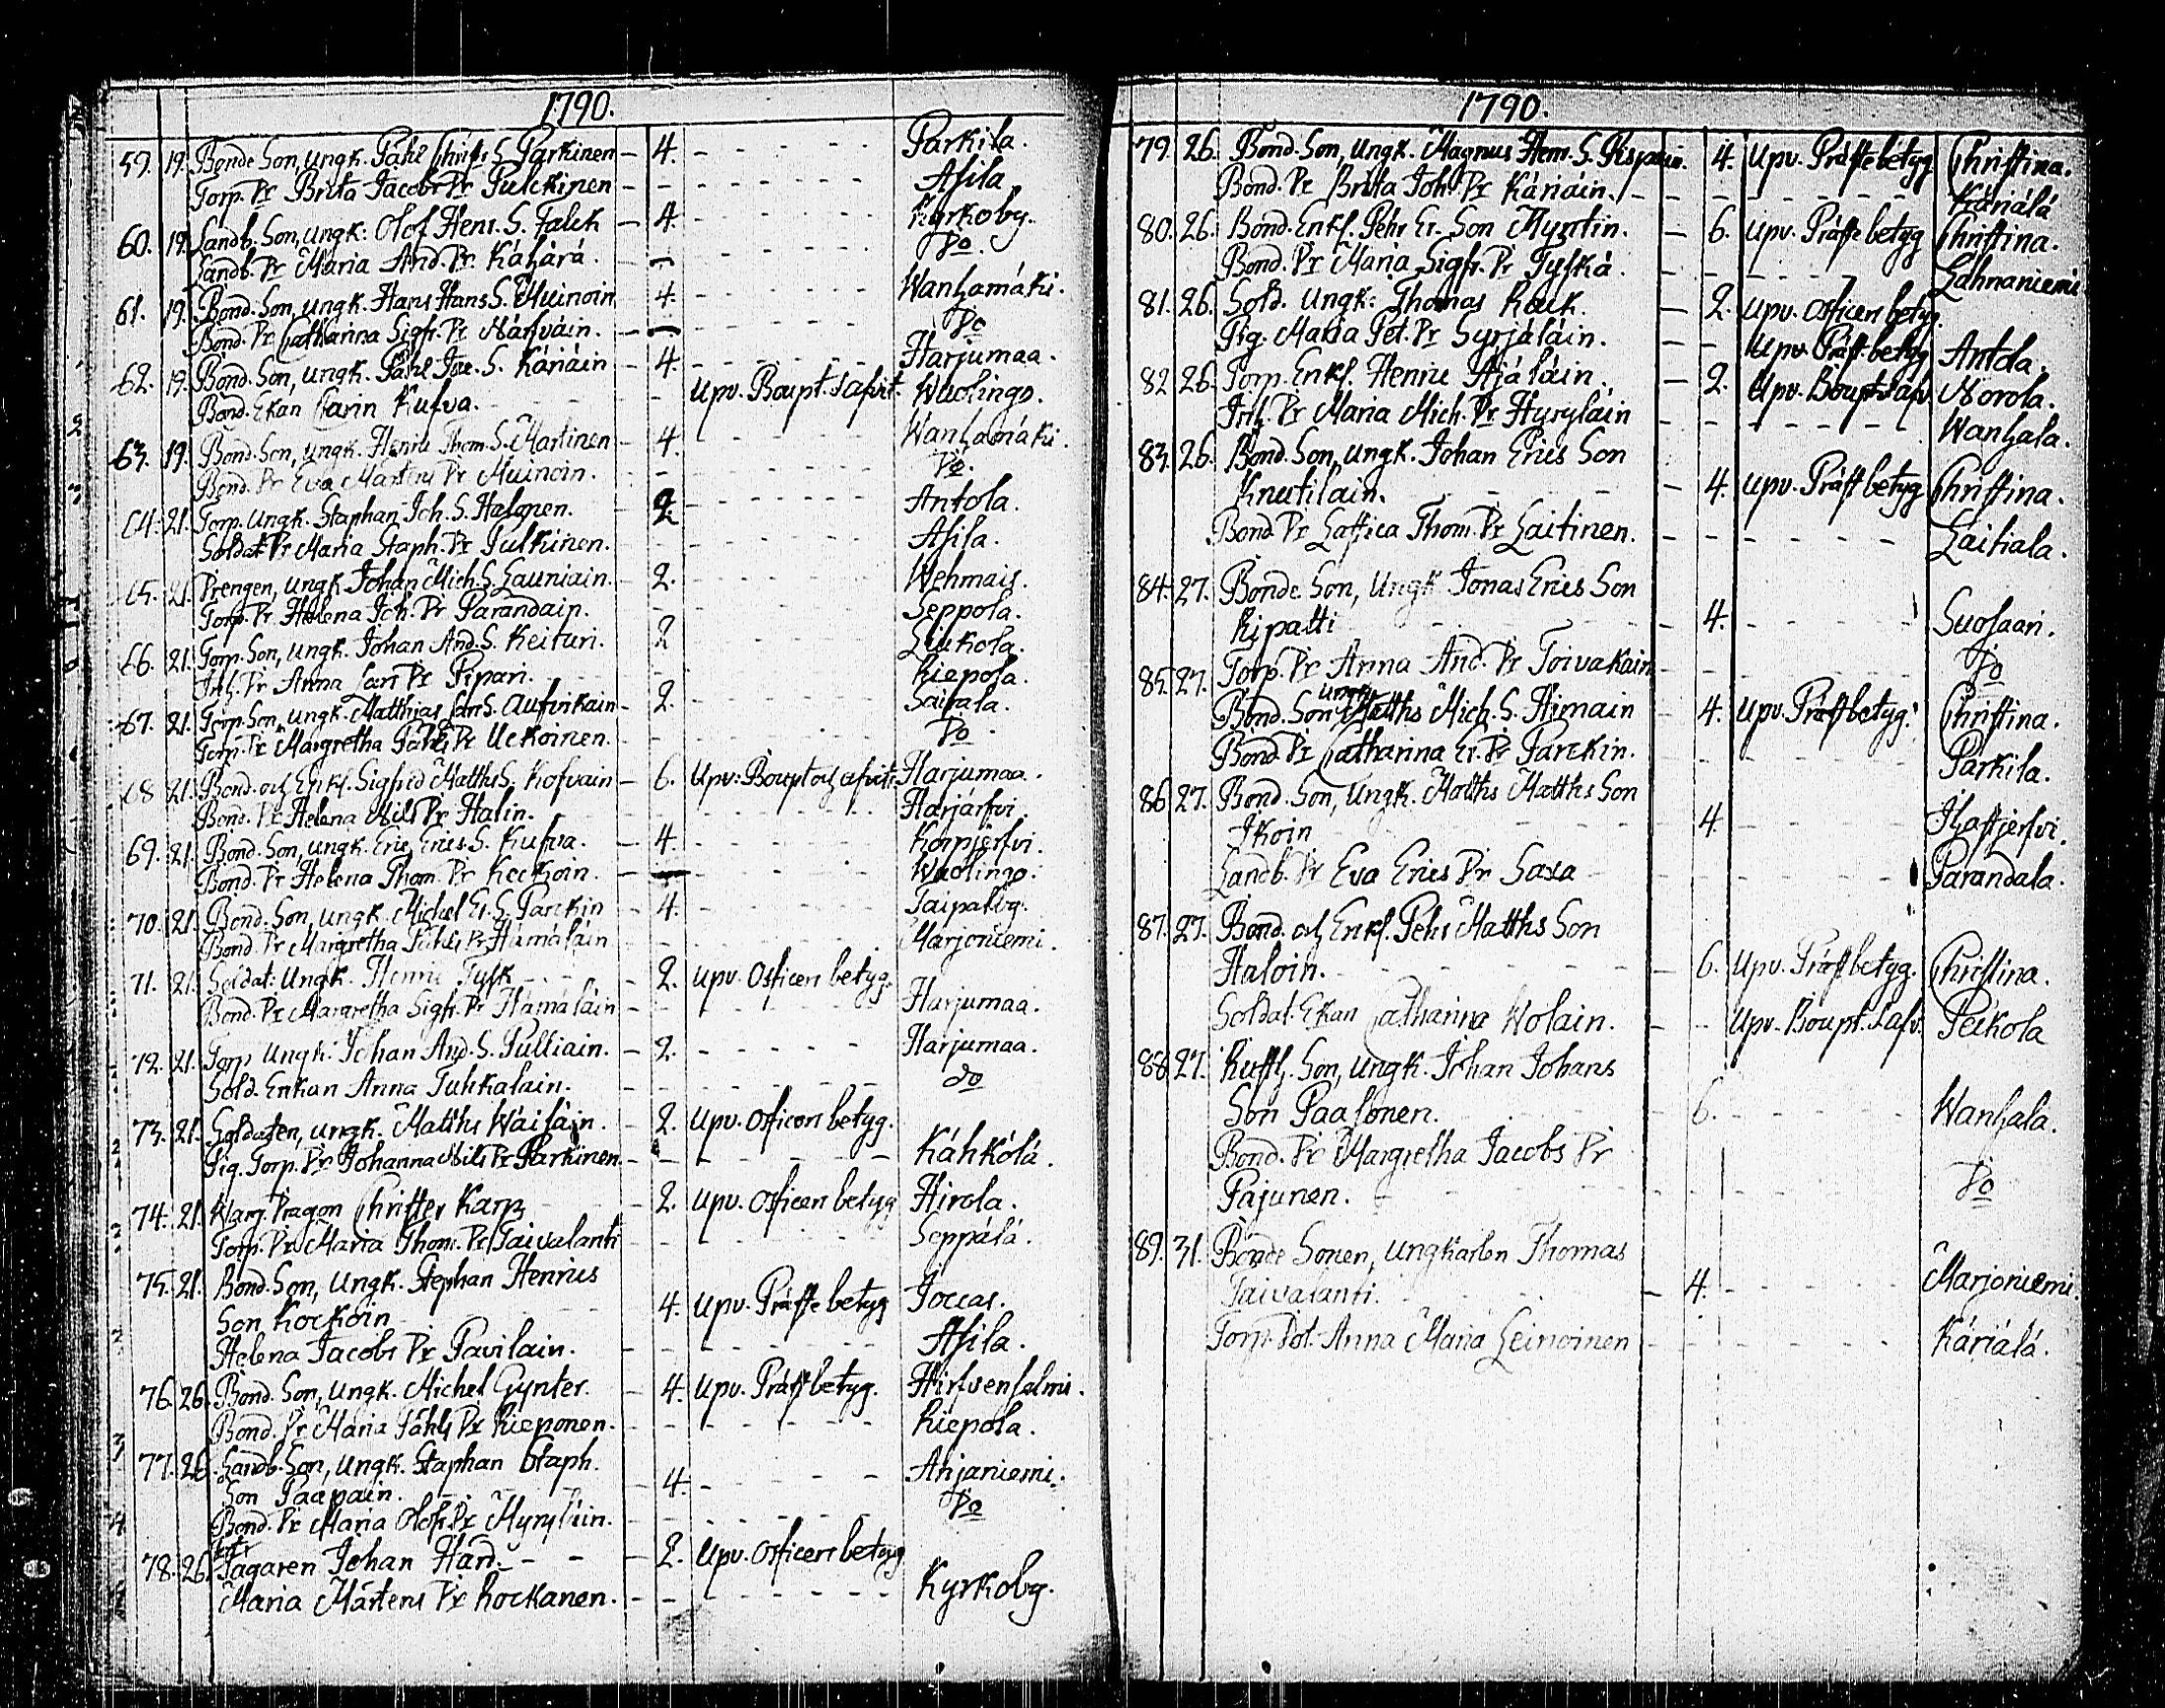 1790.
59. 19. Bonde Son, Ungk. Påhl Christ. S. Parkinen – 4. Parkila.
Torp. Dr Brita Jacobs Dr Pulckinen – Asila
60. 19. Landb. Son, Ungk. Olof Henr. S. Falck – 4. Kyrkoby.
Landb. Dr Maria And. Dr Kähärä. Do.
61. 19. Bond. Son, Ungk. Hans Hans S. Muinoin 4. Wanhamäki.
Bond. Dr Catharina Sigfr. Dr Närfväin. – Do
62. 19. Bond. Son, Ungk. Påhl S. Käriäin – 4. Harjumaa.
Bond. Ekan Carin Kufva. Upv. Boupt. Wuolingo.
63. 19. Bond. Son, Ungk. Henric Thom. S. Martinen – 4. Wanhamäki.
Bond. Dr Eva Martens Dr Muinoin. Do.
64. 21. Torp. Ungk. Staphan Joh. S. Halonen. 2 Antola.
Soldat Dr Maria Staph. Dr Pulkinen. Asila.
65. 21. Drengen, Ungk. Johan Mich. S. Launiain. 2. Wehmais.
Torp. Dr Helena Joh. Dr Parandain. Seppola.
66. 21. Torp. Son, Ungk. Johan And. S. Keituri. 2 Liukola.
Inh. Dr Anna Lars Dr Pipari. Riepola.
67. 21. Torp. Son, Ungk. Matthias Lars S. Aufvikain – 2. Saipala.
Torp. Dr Margretha Påhls Dr Uckoinen. Do.
68 21. Bond. och Enkl. Sigfrid Matths S. Kofvain – 6. Upv. Boupt och afvitr. Harjumaa.
Bond. Dr Helena Nils Dr Halin. Harjärfvi.
69. 21. Bond. Son, Ungk. Eric Erics. S. Kufva. – 4. Korpjerfvi.
Bond. Dr Helena Thom. Dr Kockoin. – Wuolingo.
70. 21. Bond. Son, Ungk. Michel Er. S. Parckin – 4. Taipaleg.
Bond. Dr Margretha Påhls Dr Hämäläin Marjoniemi.
71. 21. Soldat. Ungk. Henric Tysk 2. Upv. Officers betyg.
Bond. Dr Margretha Sigfr. Dr Hämäläin Harjumaa.
72. 21. Torp Ungk. Johan And. S. Pulliain. – 2. Harjumaa.
Sold. Enkan Anna Tuhkalain. do
73. 21. Soldaten, Ungk. Matths Wäiläin. – 2. Upv. Officers betyg.
Pig. Torp. Dr Johanna Nils Dr Parkinen. Kähkölä.
74. 21. Warg. Dragon Christer Karp 2. Upv. Officers betyg Hirola.
Torp. Dr Maria Thom. Dr Taivalanti Seppälä.
75. 21. Bond. Son, Ungk. Stephan Henrics
Son Kockoin 4. Upv. Präste betyg Joccas.
Helena Jacobs Dr Pavilain. Asila.
76. 26. Bond. Son, Ungk. Michel Gynter. – 4. Upv. Präst betyg. Hirfvensalmi.
Bond. Dr Maria Påhls Dr Rieponen. Riepola.
77. 26. Landb. Son, Ungk. Staphan Staph.
Son Paapain. 4. Anjaniemi.
Bond. Dr Maria Olofs Dr Hyryläin. Do
78. 26. Jägaren Johan Hård. – 2. Upv. Officers betyg
Maria Mårtens Dr Rockanen. Kyrkoby.
1790.
79. 26. Bond. Son, Ungk. Magnus Hem. S. Rispain. 4. Upv. Präste betyg Christina.
Bond. Dr Brita Joh. Dr Käriäin. Käriälä
80. 26. Bond. Enkl. Pehr Er. Son Myntin. – 6. Upv. Präste betyg Christina.
Bond. Dr Maria Sigfr. Dr Tyskä. Lahnaniemi
81. 26. Sold. Ungk. Thomas Rauk. – 2. Upv. Officers betyg.
Pig. Maria Pet. Dr Syrjäläin. Upv. Präst. betyg Antola.
82 26. Torp. Enkl. Henric Äijäläin. – 2. Upv. Boupt. Norola.
Inh. Dr Maria Mich. Dr Hyryläin Wanhala.
83. 26. Bond. Son, Ungk. Johan Erics Son
Knutilain. – 4. Upv. Präst betyg Christina.
Bond. Dr Lassica Thom. Dr Laitinen. Laitiala.
84. 27. Bonde Son, Ungk. Jonas Erics Son
Ripatti – 4. Suolaan.
Torp. Dr Anna And. Dr Toivakain Do
85. 27. Bond. Son Ungk. Matths Mich. S. Himain – 4. Upv. Präst betyg. Christina.
Bond. Dr Catharina Er. Dr Parckin. Parkila.
86 27. Bond. Son, Ungk. Matths Matths Son
Ikoin 4. Haffjerfvi.
Landb. Dr Eva Erics Dr Saxa Parandala.
87. 27. Bond. och Enkl. Pehr Matths Son
Haloin. 6. Upv. Präst betyg. Christina.
Soldat. Ekan Catharina Wolain. – Upv. Boupt. Peikola
88 27. Rusth. Son, Ungk. Johan Johans
Son Paasonen. 6. Wanhala.
Bond. Dr Margretha Jacobs Dr
Pajunen. Do
89. 31. Bonde Sonen, Ungkarlen Thomas
Taivalanti. – 4. Marjoniemi.
Torp. Dot. Anna Maria Leinoinen Käriälä.